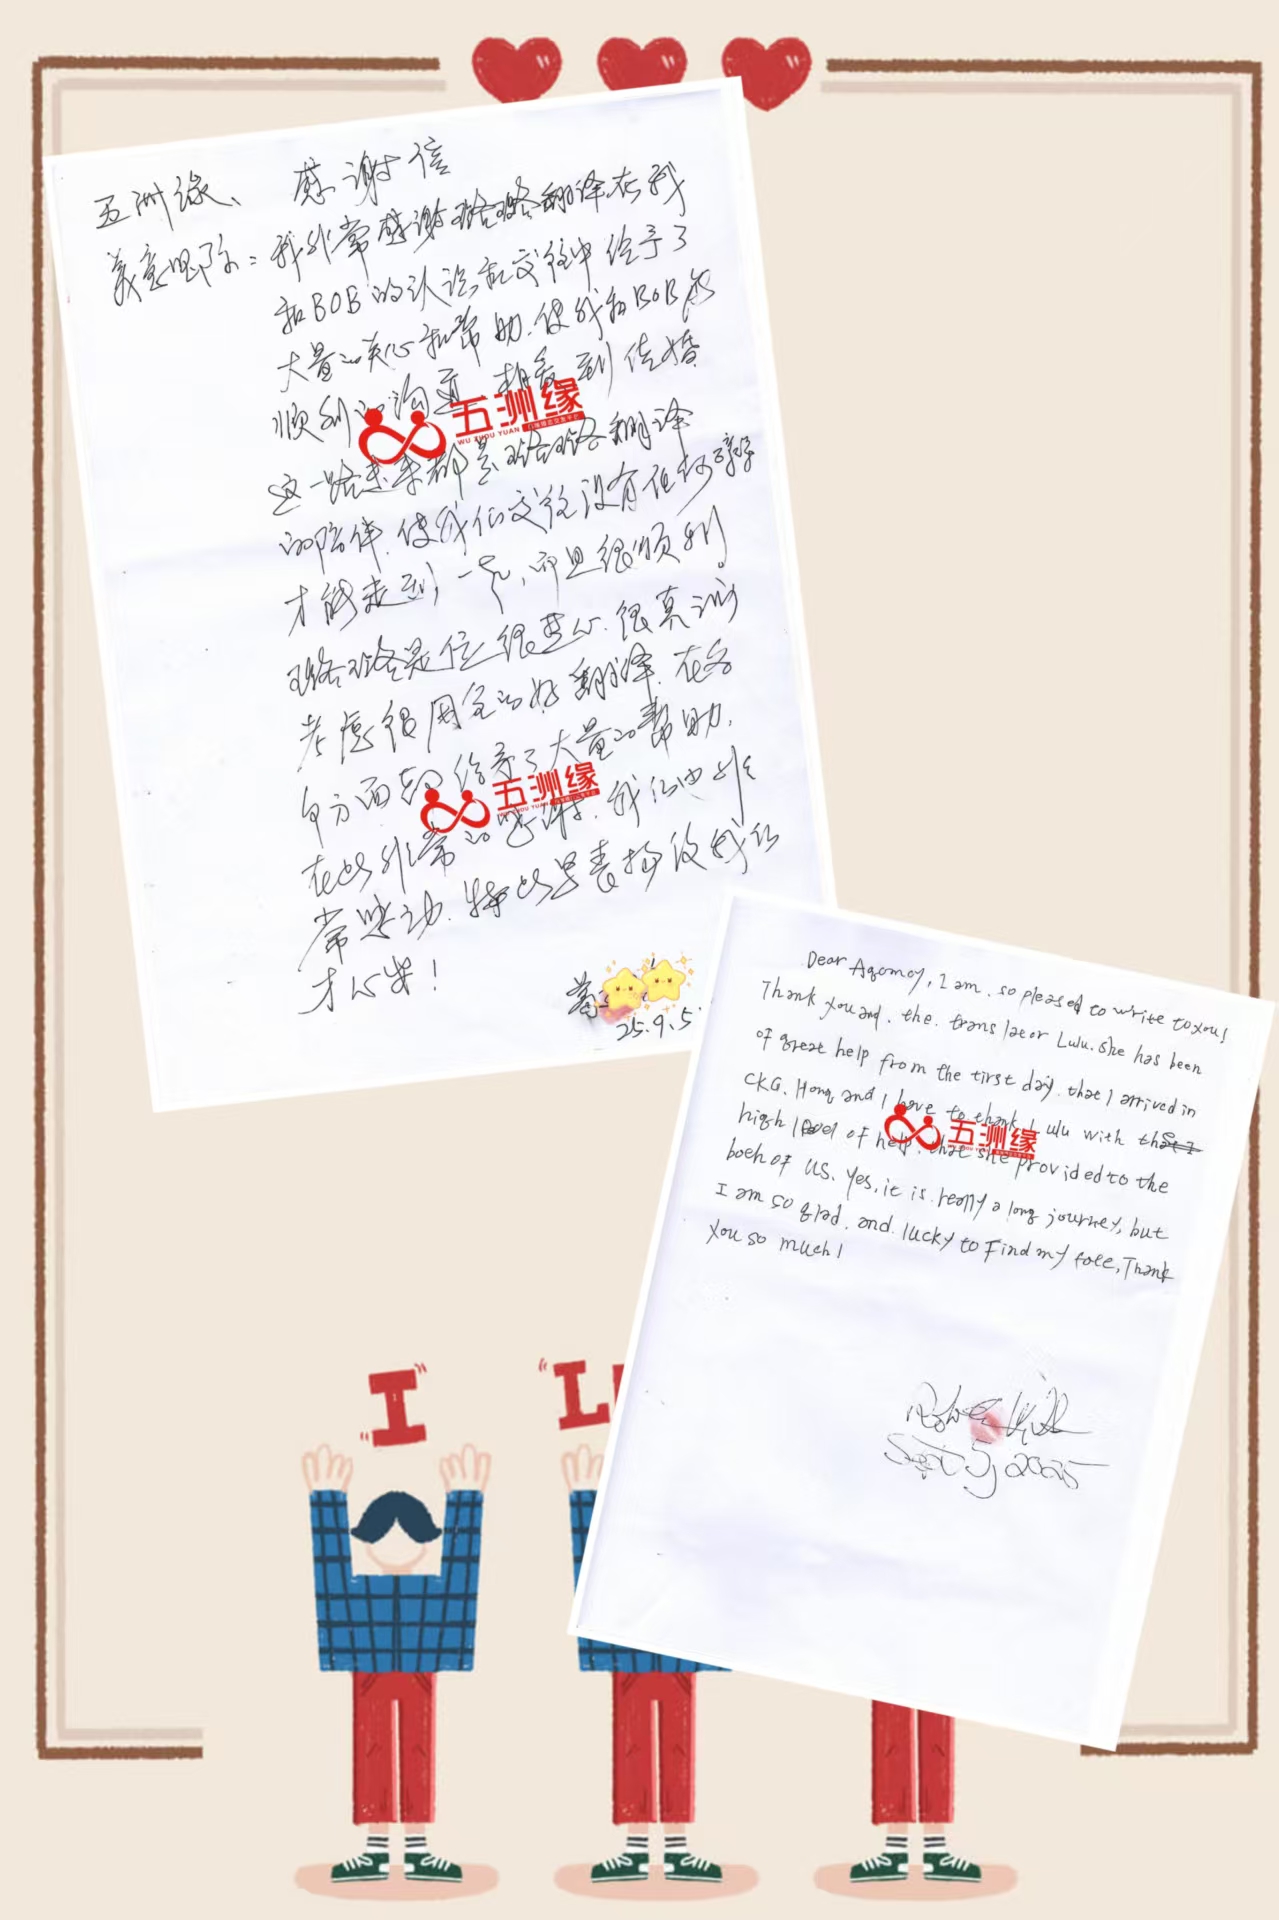 感谢信
五洲缘、
美意国际：我非常感谢璐璐翻译在我
和BOB的认识和交往中给予了
大量的关心和帮助.使我和BOB能
顺利的沟通 相爱到结婚
这一路走来都是璐璐翻译
的陪伴.使我们交往没有任何障碍
才能走到一起、而且很顺利。
璐璐是位很热心.很真诚
考虑很周全的好翻译.在各
个方面都给予了大量的帮助.
在此非常的感谢.我们也非
常感动.特此是表扬后我们
才心安！
25.9.5.
五洲缘
WU ZHOU YUAN
五洲缘
Dear Agomcy, I am. so pleased to write to you!
Thank you and. the. translator Lulu. she has been
of great help from the first day. that I arrived in
CKG. Hong and I have to thank Lulu with that I
high level of help. that she provided to the
both of us. Yes, it is. really a long journey, but
I am so glad. and. lucky to Find my fate, Thank
you so much!
五洲缘
Sept 5, 2025
I L